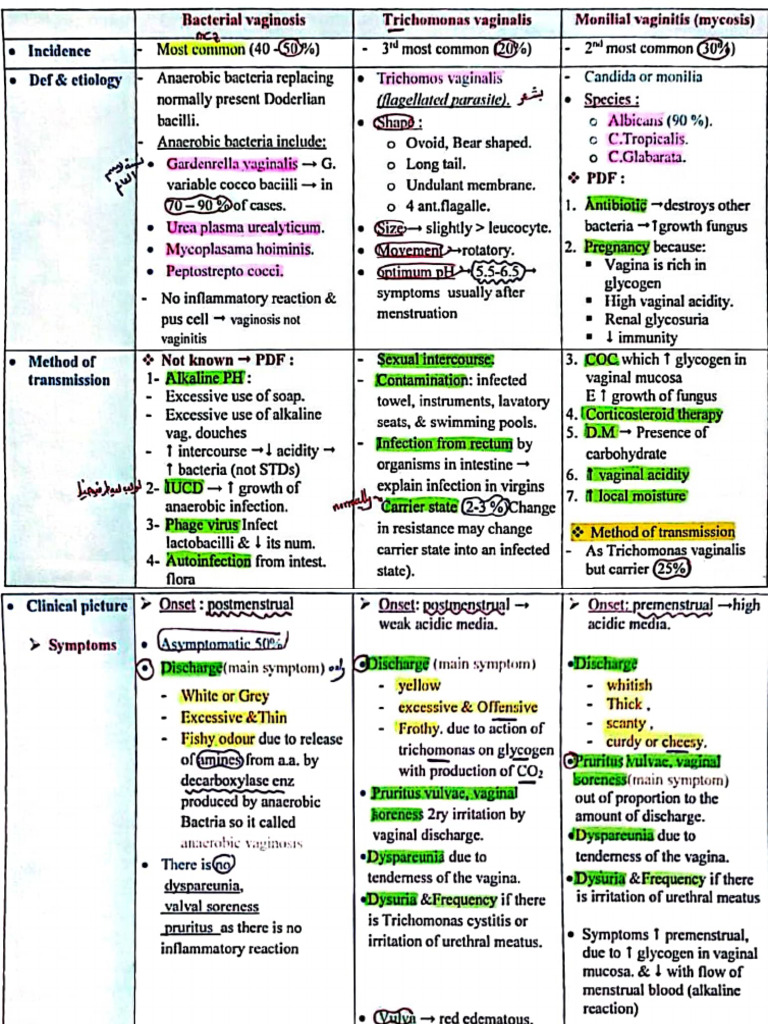 Bacterial vaginosis
Trichomonas vaginalis
Monilial vaginitis (mycosis)
• Incidence
- Most common (40 -50%)
- 3rd most common (20%)
- 2nd most common (30%)
• Def & etiology
- Anaerobic bacteria replacing
normally present Doderlian
bacilli.
- Anaerobic bacteria include:
• Gardenrella vaginalis → G.
variable cocco baciili → in
70 – 90 % of cases.
• Urea plasma urealyticum.
• Mycoplasama hoiminis.
• Peptostrepto cocci.
- No inflammatory reaction &
pus cell → vaginosis not
vaginitis
• Trichomos vaginalis
(flagellated parasite).
• Shape :
o Ovoid, Bear shaped.
o Long tail.
o Undulant membrane.
o 4 ant.flagalle.
• Size → slightly > leucocyte.
• Movement →rotatory.
• optimum pH → 5.5-6.5 →
symptoms usually after
menstruation
- Candida or monilia
• Species :
o Albicans (90 %).
o C.Tropicalis.
o C.Glabarata.
❖ PDF :
1. Antibiotic →destroys other
bacteria →↑growth fungus
2. Pregnancy because:
▪ Vagina is rich in
glycogen
▪ High vaginal acidity.
▪ Renal glycosuria
▪ ↓ immunity
• Method of
transmission
❖ Not known → PDF :
1- Alkaline PH :
- Excessive use of soap.
- Excessive use of alkaline
vag. douches
- ↑ intercourse →↓ acidity →
↑ bacteria (not STDs)
2- IUCD → ↑ growth of
anaerobic infection.
3- Phage virus Infect
lactobacilli & ↓ its num.
4- Autoinfection from intest.
flora
- Sexual intercourse.
- Contamination: infected
towel, instruments, lavatory
seats, & swimming pools.
- Infection from rectum by
organisms in intestine →
explain infection in virgins
normally
- Carrier state (2-3 %)Change
in resistance may change
carrier state into an infected
state).
3. COC which ↑ glycogen in
vaginal mucosa
E ↑ growth of fungus
4. Corticosteroid therapy
5. D.M → Presence of
carbohydrate
6. ↑ vaginal acidity
7. ↑ local moisture
❖ Method of transmission
- As Trichomonas vaginalis
but carrier (25%)
• Clinical picture
➢ Symptoms
➢ Onset : postmenstrual
• Asymptomatic 50%
• Discharge(main symptom)
- White or Grey
- Excessive &Thin
- Fishy odour due to release
of amines from a.a. by
decarboxylase enz
produced by anaerobic
Bactria so it called
anaerobic vaginosis
• There is no
dyspareunia,
valval soreness
pruritus as there is no
inflammatory reaction
➢ Onset: postmenstrual →
weak acidic media.
•Discharge (main symptom)
- yellow
- excessive & Offensive
- Frothy. due to action of
trichomonas on glycogen
with production of CO2
• Pruritus vulvae, vaginal
soreness 2ry irritation by
vaginal discharge.
•Dyspareunia due to
tenderness of the vagina.
•Dysuria &Frequency if there
is Trichomonas cystitis or
irritation of urethral meatus.
• Vulva → red edematous.
➢ Onset: premenstrual →high
acidic media.
•Discharge
- whitish
- Thick ,
- scanty ,
- curdy or cheesy.
•Pruritus Vulvae, vaginal
soreness(main symptom)
out of proportion to the
amount of discharge.
•Dyspareunia due to
tenderness of the vagina.
•Dysuria &Frequency if there
is irritation of urethral meatus
• Symptoms ↑ premenstrual,
due to ↑ glycogen in vaginal
mucosa. & ↓ with flow of
menstrual blood (alkaline
reaction)